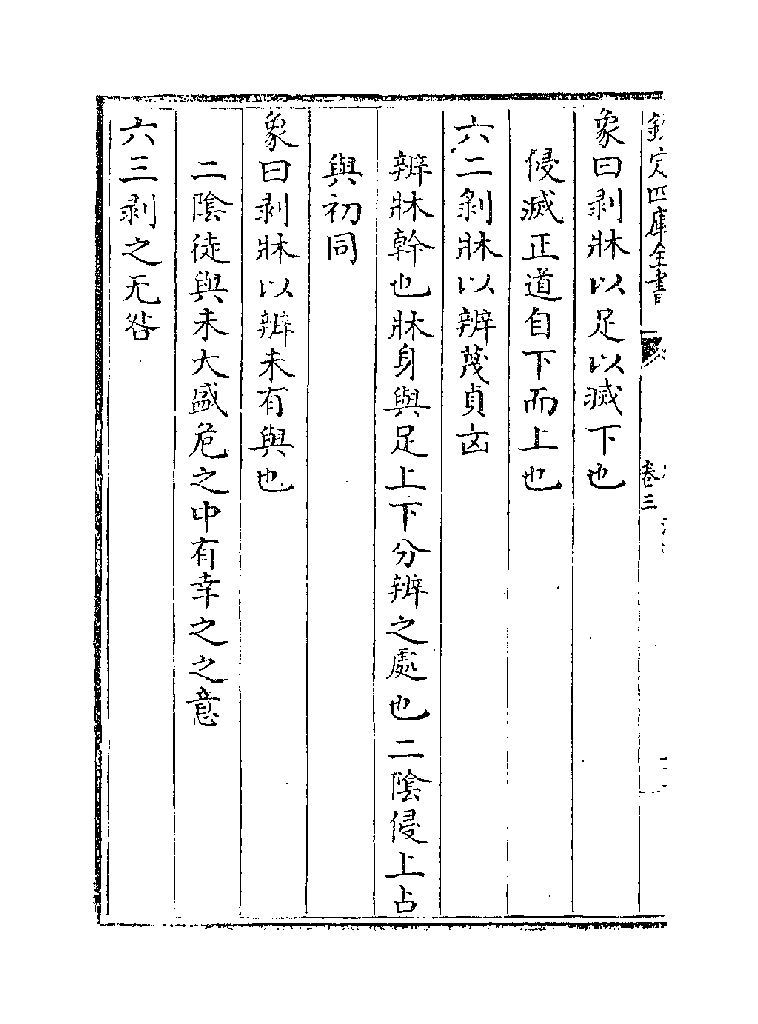 欽定四庫全書
卷三
象曰剥牀以足以滅下也
侵滅正道自下而上也
六二剝牀以辨蔑貞凶
辨牀幹也牀身與足上下分辨之處也二陰侵上占
與初同
象曰剥牀以辨未有與也
二陰徒與未大盛危之中有幸之之意
六三剥之无咎